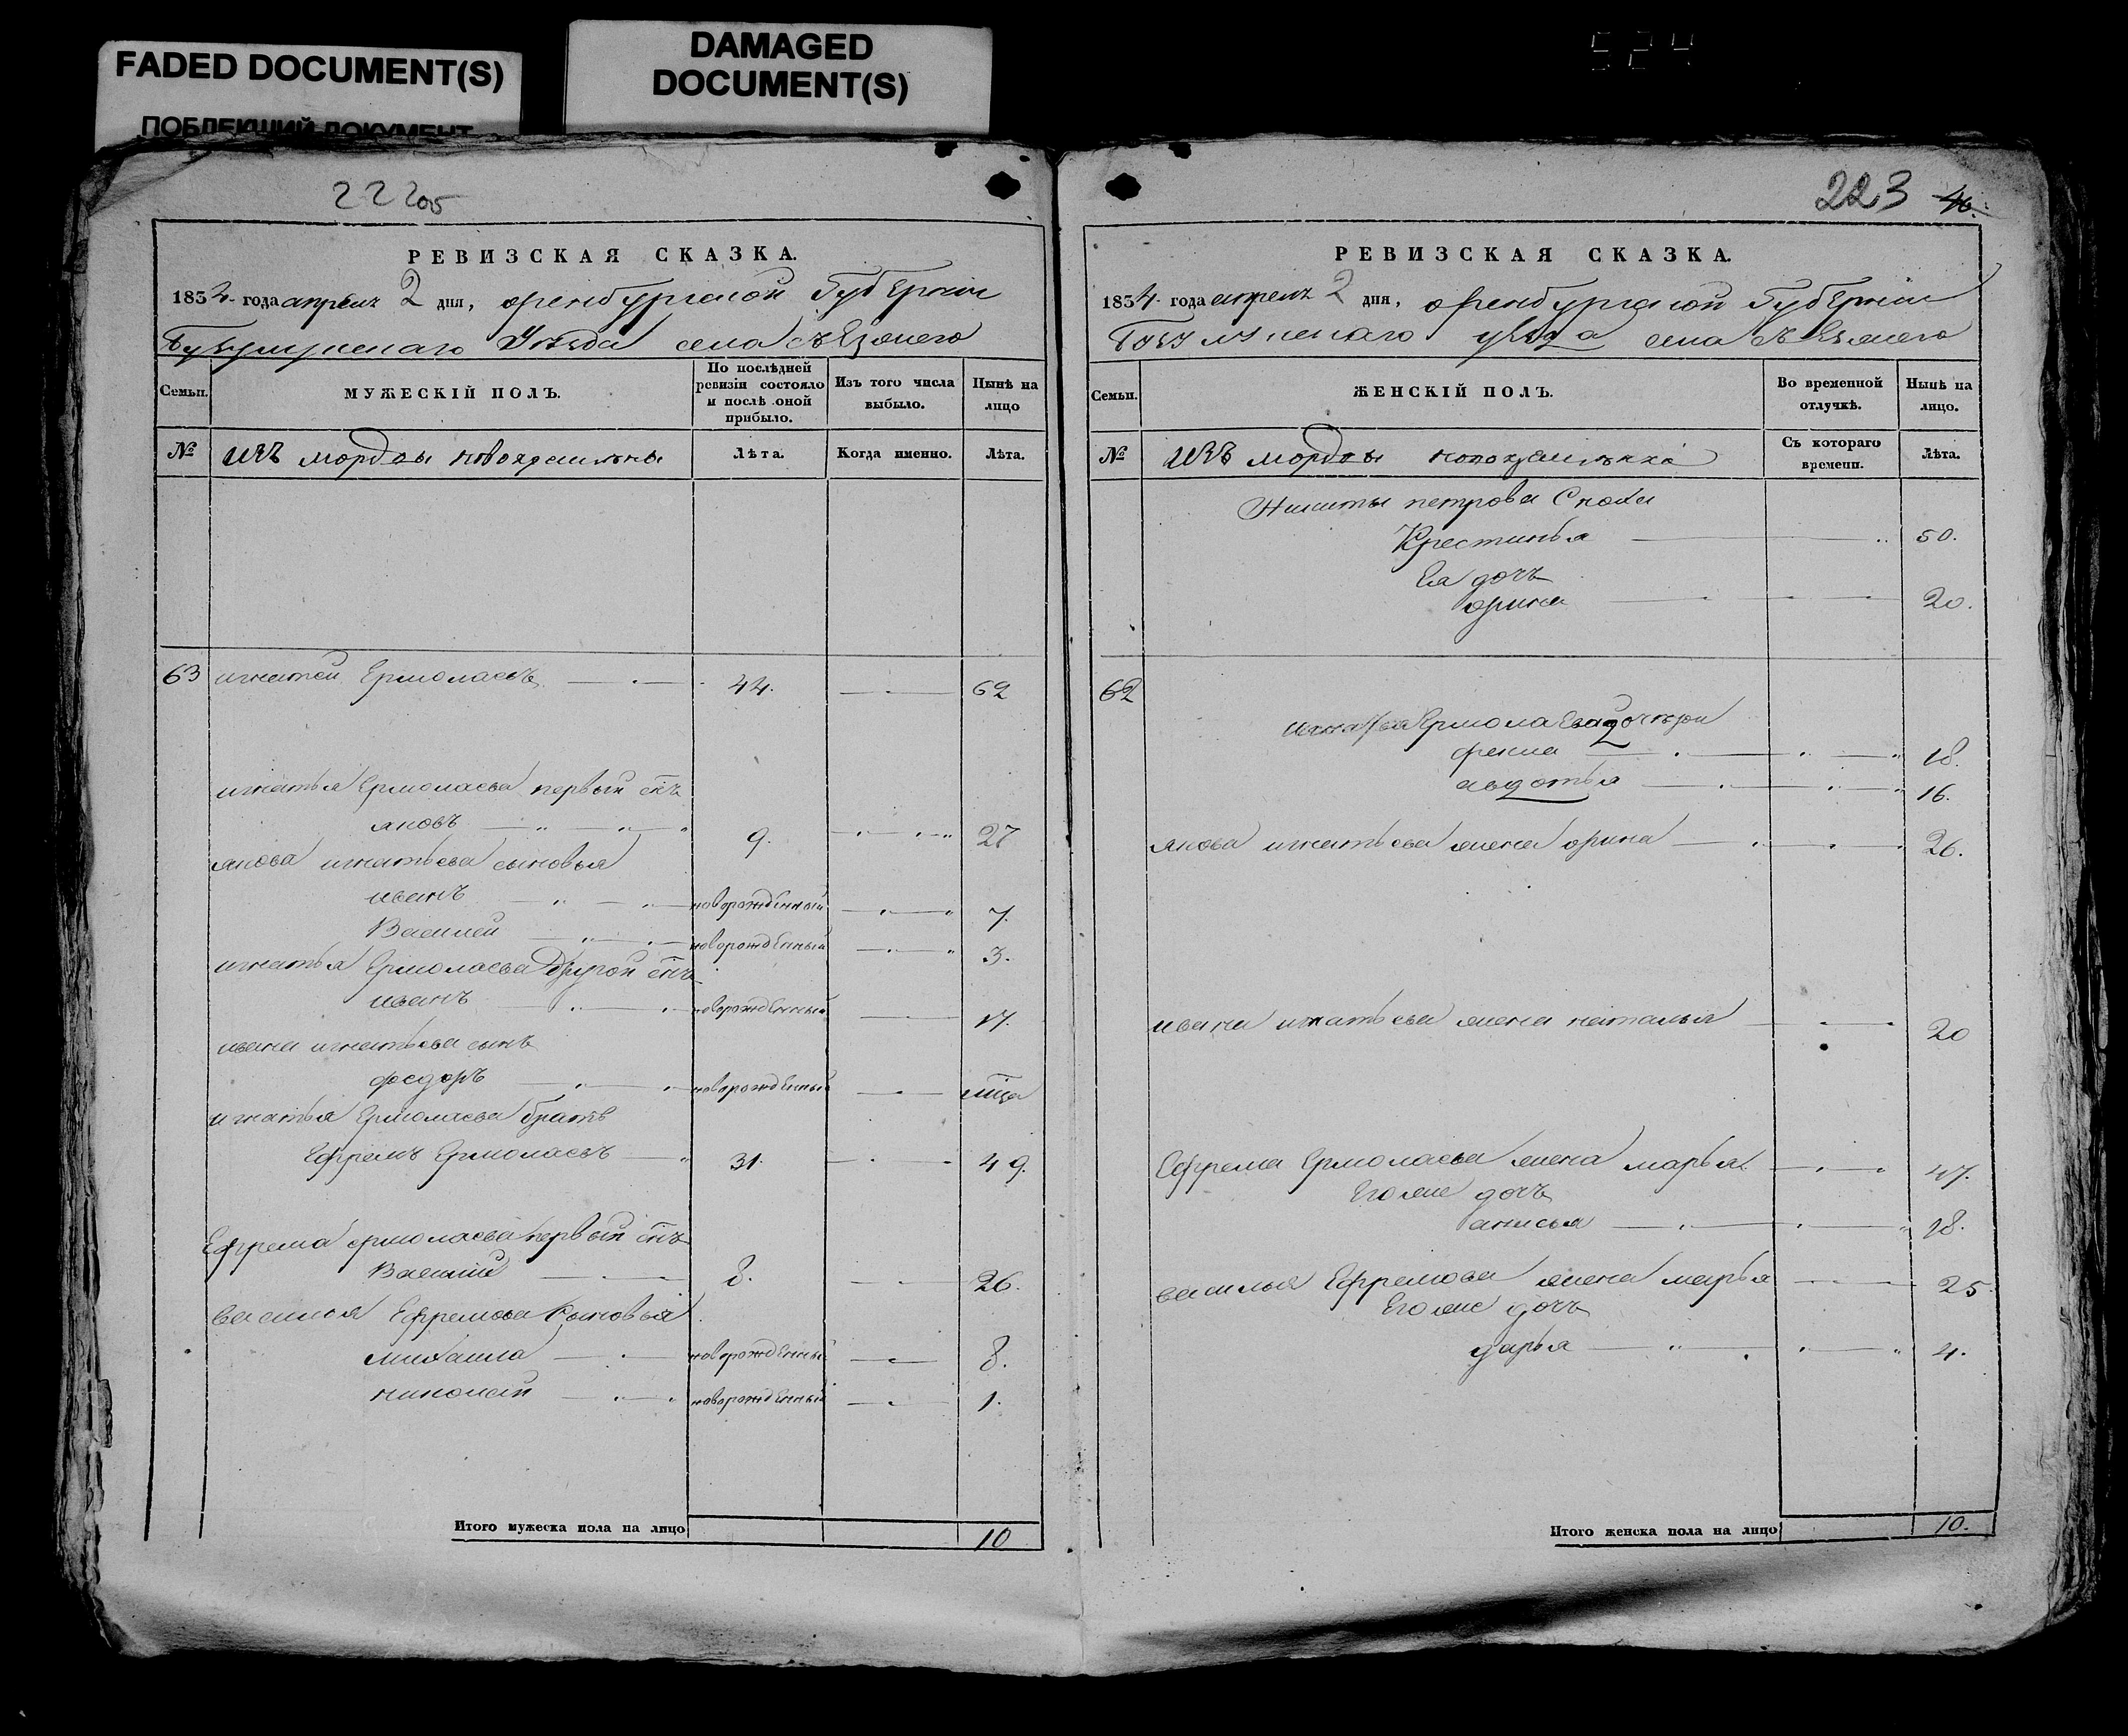 FADED DOCUMENT(S)
ПОБЛЕКШИЙ ДОКУМЕНТ
DAMAGED
DOCUMENT(S)
524
222об
РЕВИЗСКАЯ СКАЗКА.
1834 года апреля 2 дня, оренбургской Губернии
Уезда села
Семьи.
МУЖЕСКІЙ ПОЛЪ.
По послѣдней ревизіи состояло и послѣ оной прибыло.
Изъ того числа выбыло.
Нынѣ на лицо
№ изъ мордвы
Лѣта.
Когда именно.
Лѣта.
63 игнатей Ермолаевъ 44. 62
игнатья Ермолаева первый снъ
яковъ 9. 27
якова игнатьева сыновья
иванъ новорожденный 7.
Василей новорожденный 3.
игнатья Ермолаева Другой снъ
иванъ новорожденный 17.
ивана игнатьева сынъ
федоръ новорожденный
игнатья Ермолаева братъ
Ефремъ Ермолаевъ 31. 49.
Ефрема ермолаева первый снъ
Василий 8. 26.
василья Ефремова сыновья
михаила новорожденный 8.
николай новорожденный 1.
Итого мужеска пола на лицо 10
223 46.
РЕВИЗСКАЯ СКАЗКА.
1834 года апреля 2 дня, оренбургской Губернии
уезда села
Семьи.
ЖЕНСКІЙ ПОЛЪ.
Во временной отлучкѣ.
Нынѣ на лицо.
№ изъ мордвы
Съ котораго времени.
Лѣта.
Никиты петрова Сноха
Крестинья 50.
Ея дочь
орина 20.
62
игнатья Ермолаева дочери
фекла 18.
авдотья 16.
якова игнатьева жена орина 26.
ивана игнатьева жена наталья 20
Ефрема Ермолаева жена марья 47.
Его же дочь
анисья 18.
василья Ефремова жена марья 25.
Его же дочь
дарья 4.
Итого женска пола на лицо 10.